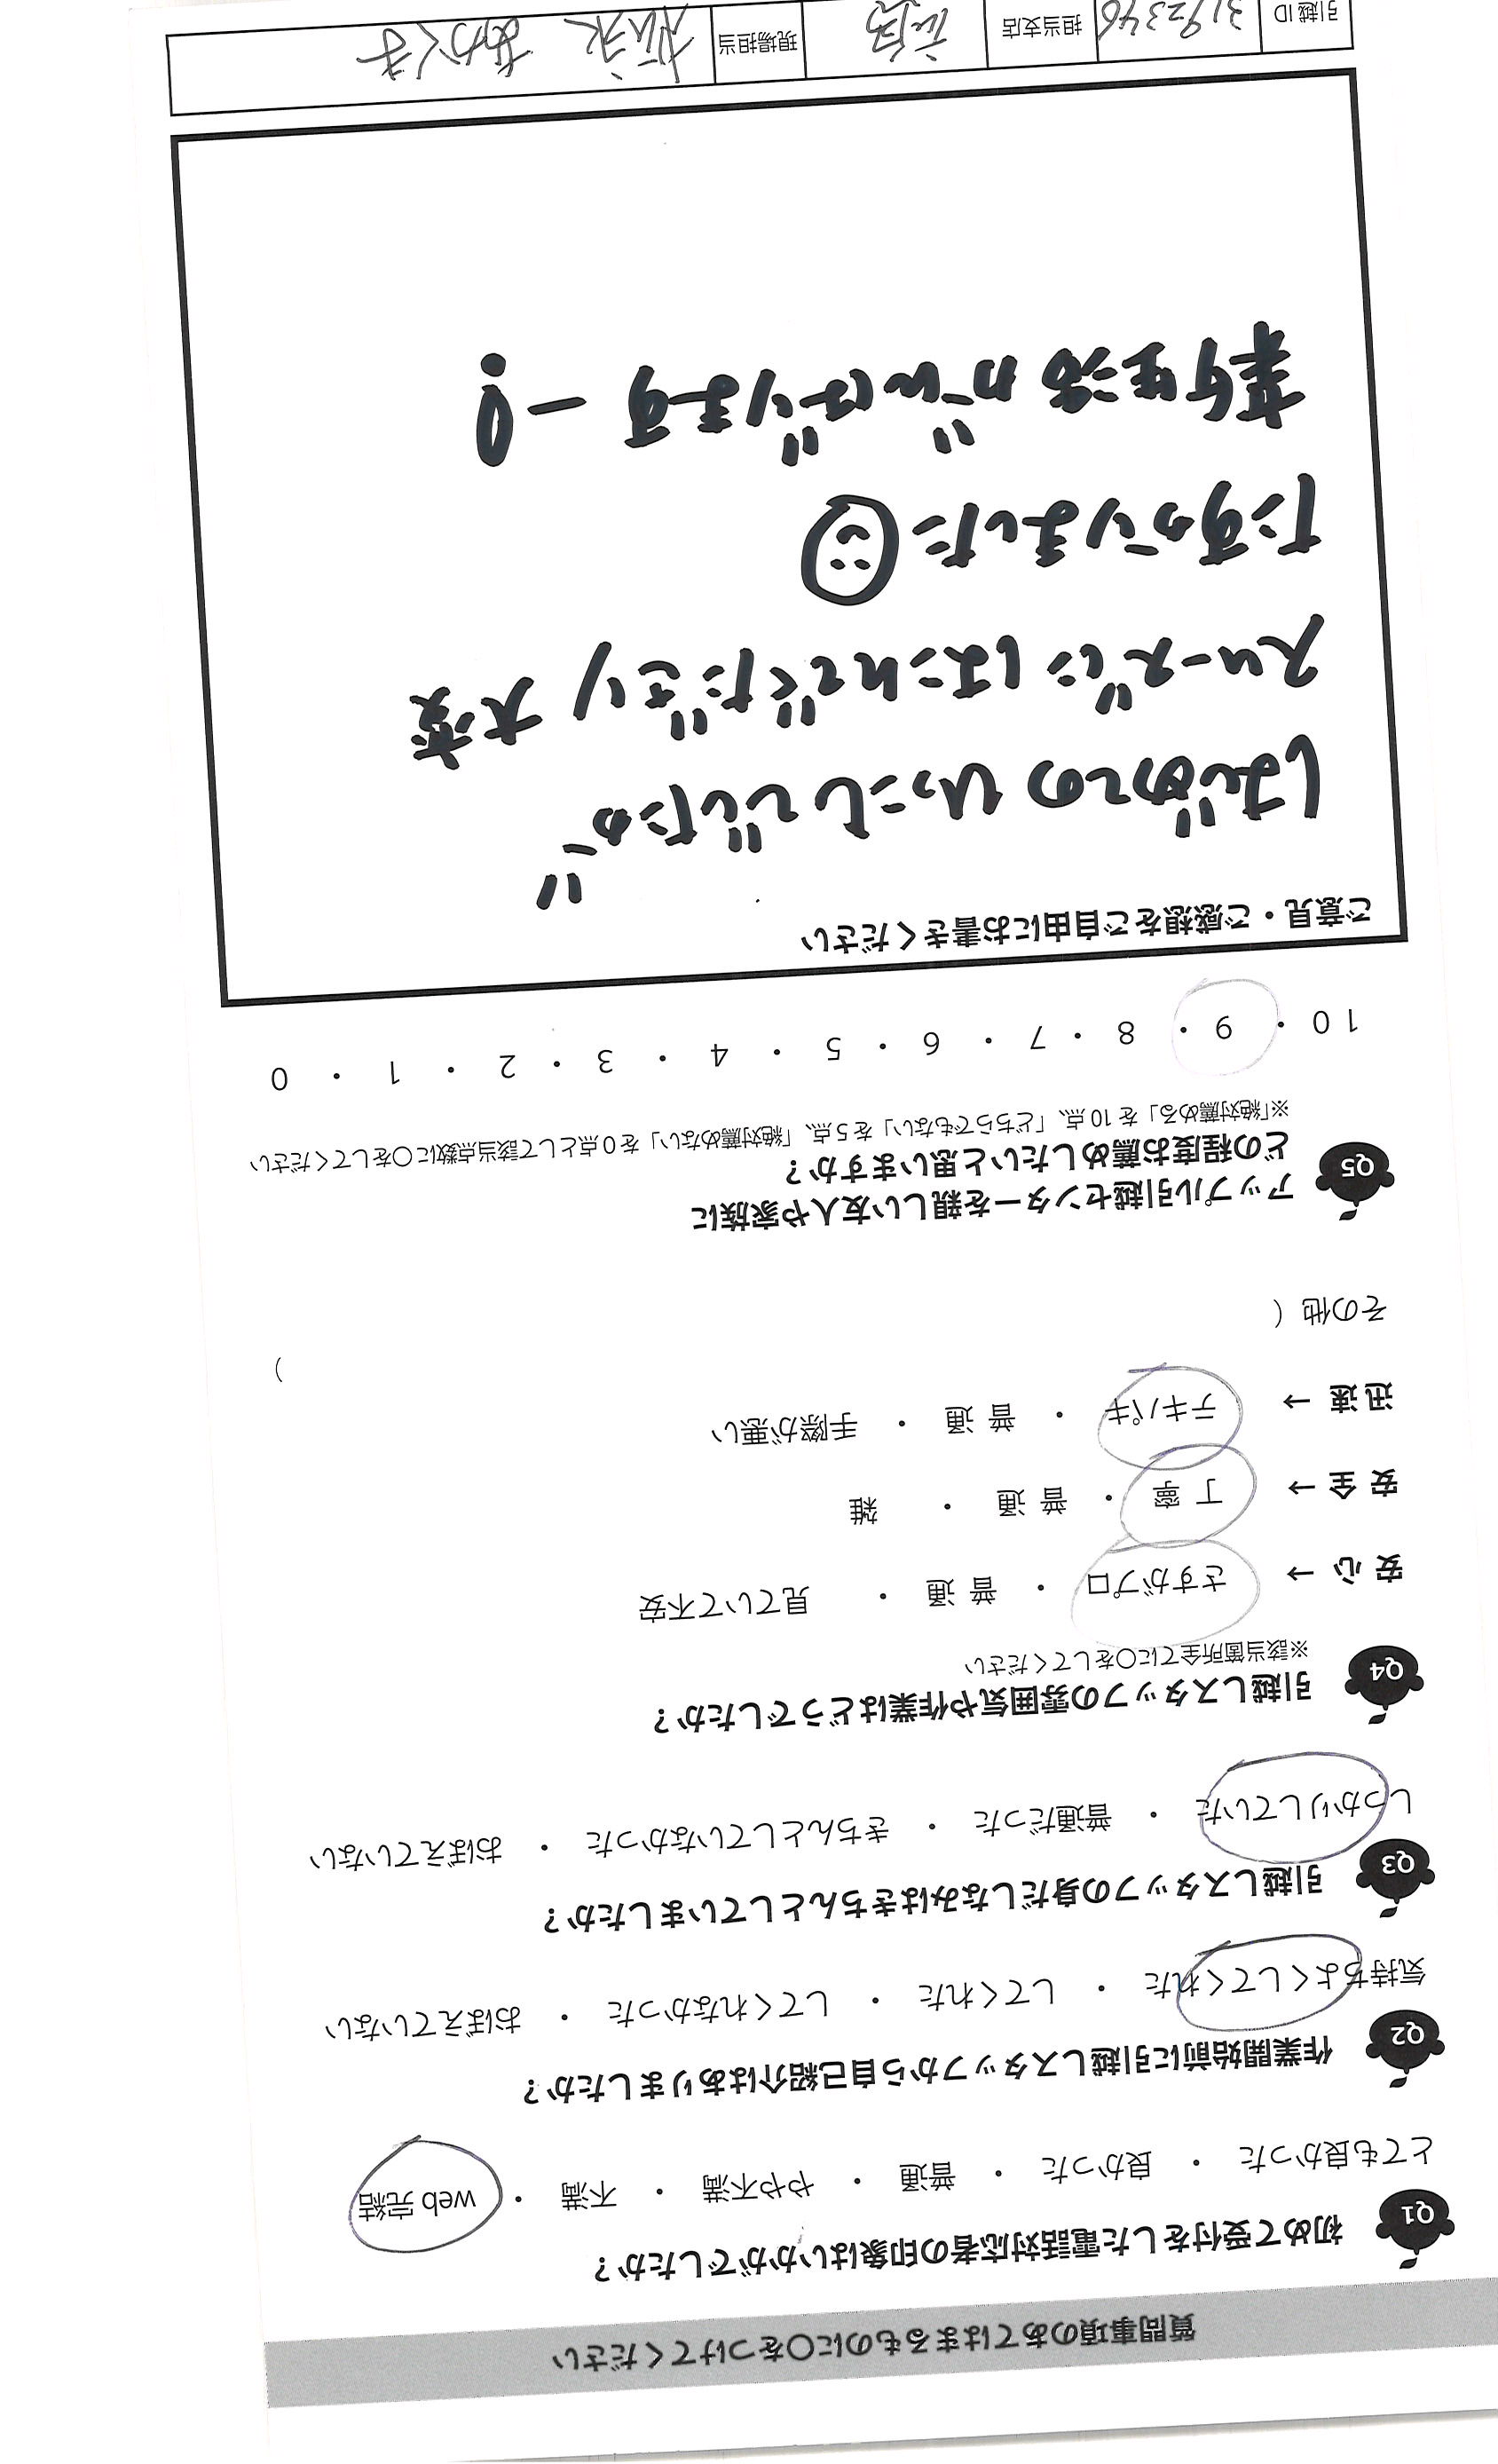 質問事項のあてはまるものに〇をつけてください
Q1 初めて受付をした電話対応者の印象はいかがでしたか？
とても良かった ・ 良かった ・ 普通 ・ やや不満 ・ 不満 ・ web 完結
Q2 作業開始前に引越しスタッフから自己紹介はありましたか？
気持ちよくしてくれた ・ してくれた ・ してくれなかった ・ おぼえていない
Q3 引越しスタッフの身だしなみはきちんとしていましたか？
しっかりしていた ・ 普通だった ・ きちんとしていなかった ・ おぼえていない
Q4 引越しスタッフの雰囲気や作業はどうでしたか？
※該当箇所全てに〇をしてください
安心 → さすがプロ ・ 普通 ・ 見ていて不安
安全 → 丁寧 ・ 普通 ・ 雑
迅速 → テキパキ ・ 普通 ・ 手際が悪い
その他（ ）
Q5 アップル引越センターを親しい友人や家族に
どの程度お薦めしたいと思いますか？
※「絶対薦める」を 10 点、「どちらでもない」を 5 点、「絶対薦めない」を 0 点として該当点数に〇をしてください
10 ・ 9 ・ 8 ・ 7 ・ 6 ・ 5 ・ 4 ・ 3 ・ 2 ・ 1 ・ 0
ご意見・ご感想をご自由にお書きください
はじめてのひっこしでしたが
スムーズにはこんでくださり 大変
たすかりました
新生活がんばりますー!
引越 ID 3192346 担当支店 広島 現場担当 松永